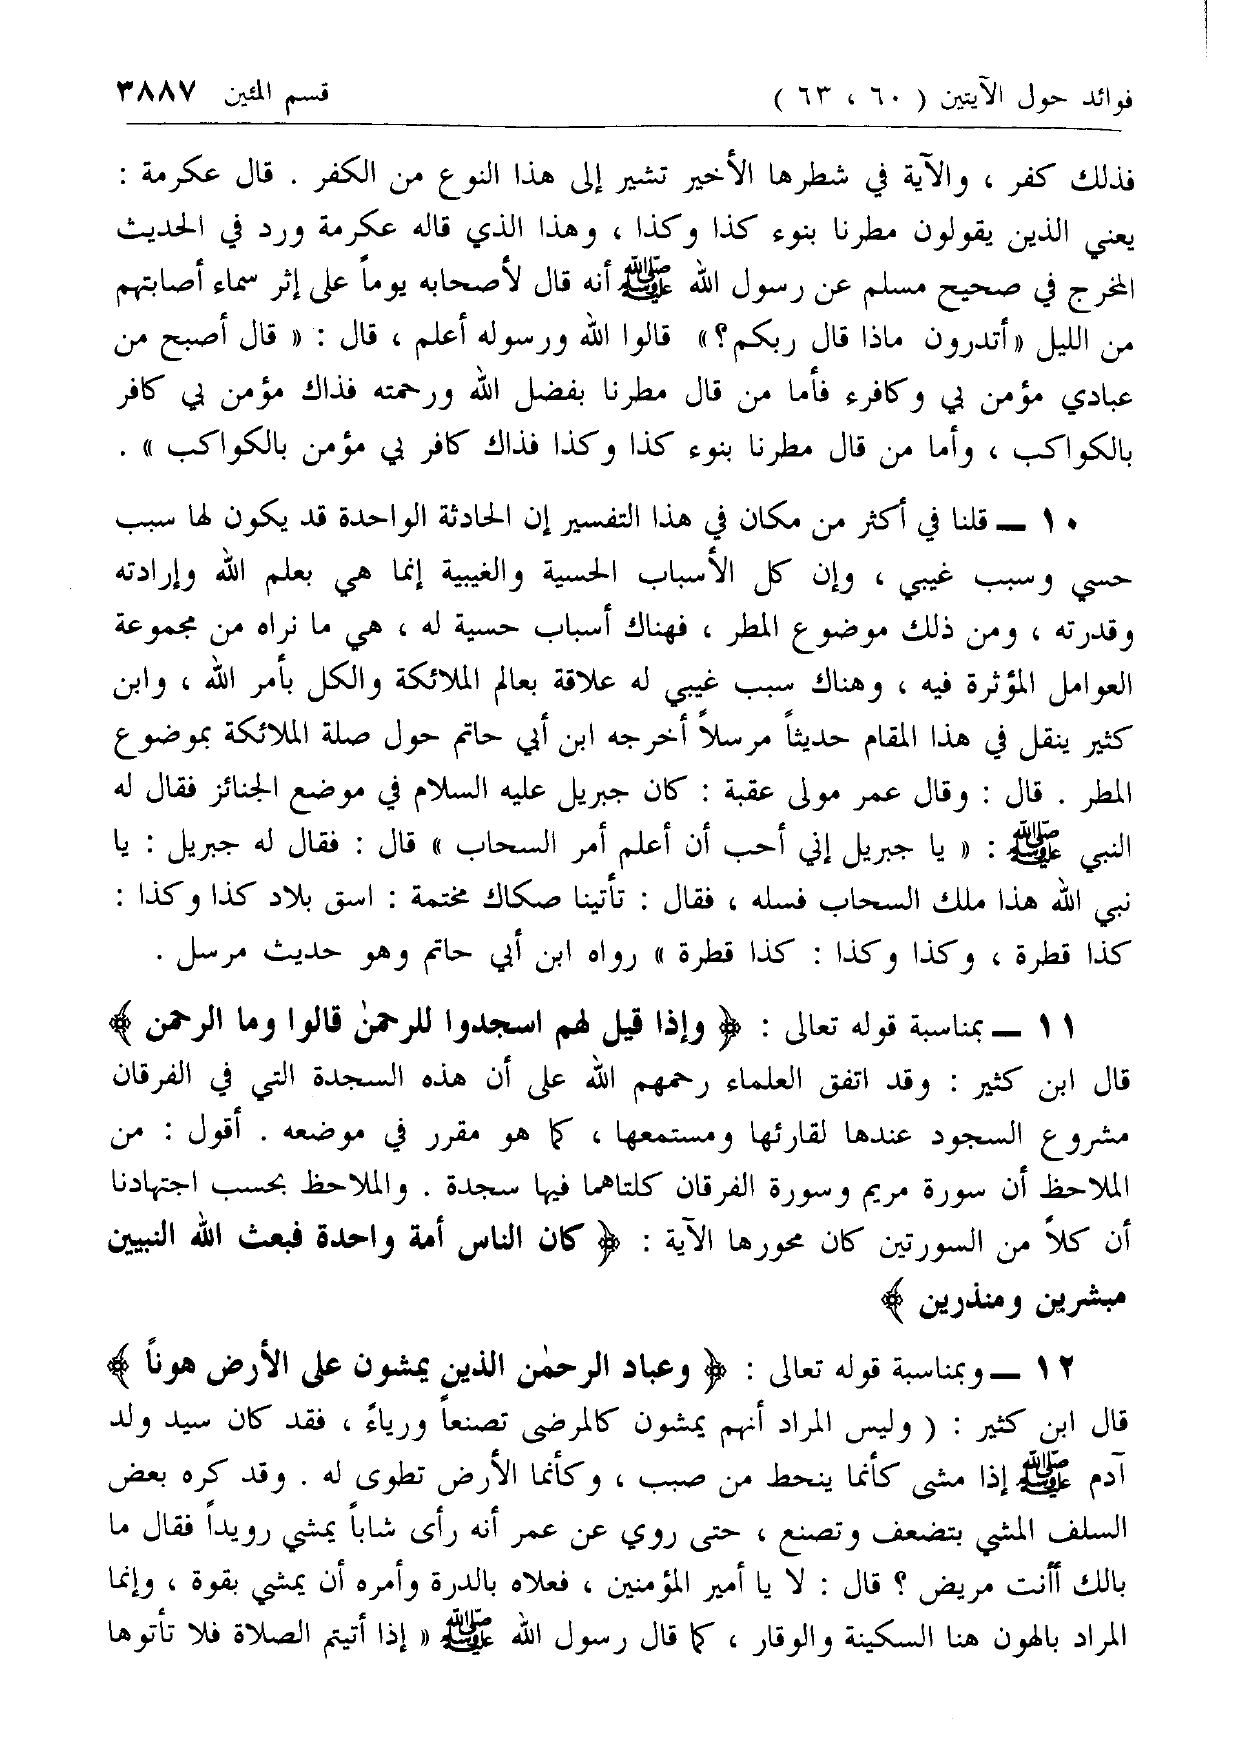 فوائد حول الآيتين ( ٦٠ ، ٦٣ ) قسم المئين ٣٨٨٧
فذلك كفر ، والآية في شطرها الأخير تشير إلى هذا النوع من الكفر . قال عكرمة :
يعني الذين يقولون مطرنا بنوء كذا وكذا ، وهذا الذي قاله عكرمة ورد في الحديث
المخرج في صحيح مسلم عن رسول الله ﷺ أنه قال لأصحابه يوماً على إثر سماء أصابتهم
من الليل «أتدرون ماذا قال ربكم؟» قالوا الله ورسوله أعلم ، قال : « قال أصبح من
عبادي مؤمن بي وكافرء فأما من قال مطرنا بفضل الله ورحمته فذاك مؤمن بي كافر
بالكواكب ، وأما من قال مطرنا بنوء كذا وكذا فذاك كافر بي مؤمن بالكواكب » .
١٠ ــ قلنا في أكثر من مكان في هذا التفسير إن الحادثة الواحدة قد يكون لها سبب
حسي وسبب غيبي ، وإن كل الأسباب الحسية والغيبية إنما هي بعلم الله وإرادته
وقدرته ، ومن ذلك موضوع المطر ، فهناك أسباب حسية له ، هي ما نراه من مجموعة
العوامل المؤثرة فيه ، وهناك سبب غيبي له علاقة بعالم الملائكة والكل بأمر الله ، وابن
كثير ينقل في هذا المقام حديثاً مرسلاً أخرجه ابن أبي حاتم حول صلة الملائكة بموضوع
المطر . قال : وقال عمر مولى عقبة : كان جبريل عليه السلام في موضع الجنائز فقال له
النبي ﷺ : « يا جبريل إني أحب أن أعلم أمر السحاب » قال : فقال له جبريل : يا
نبي الله هذا ملك السحاب فسله ، فقال : تأتينا صكاك مختمة : اسق بلاد كذا وكذا :
كذا قطرة ، وكذا وكذا : كذا قطرة » رواه ابن أبي حاتم وهو حديث مرسل .
١١ ــ بمناسبة قوله تعالى : ﴿ وإذا قيل لهم اسجدوا للرحمٰن قالوا وما الرحمن ﴾
قال ابن كثير : وقد اتفق العلماء رحمهم الله على أن هذه السجدة التي في الفرقان
مشروع السجود عندها لقارئها ومستمعها ، كما هو مقرر في موضعه . أقول : من
الملاحظ أن سورة مريم وسورة الفرقان كلتاهما فيها سجدة . والملاحظ بحسب اجتهادنا
أن كلاً من السورتين كان محورها الآية : ﴿ كان الناس أمة واحدة فبعث الله النبيين
مبشرين ومنذرين ﴾
١٢ ــ وبمناسبة قوله تعالى : ﴿ وعباد الرحمٰن الذين يمشون على الأرض هوناً ﴾
قال ابن كثير : ( وليس المراد أنهم يمشون كالمرضى تصنعاً ورياءً ، فقد كان سيد ولد
آدم ﷺ إذا مشى كأنما ينحط من صبب ، وكأنما الأرض تطوى له . وقد كره بعض
السلف المشي بتضعف وتصنع ، حتى روي عن عمر أنه رأى شاباً يمشي رويداً فقال ما
بالك أأنت مريض ؟ قال : لا يا أمير المؤمنين ، فعلاه بالدرة وأمره أن يمشي بقوة ، وإنما
المراد بالهون هنا السكينة والوقار ، كما قال رسول الله ﷺ « إذا أتيتم الصلاة فلا تأتوها